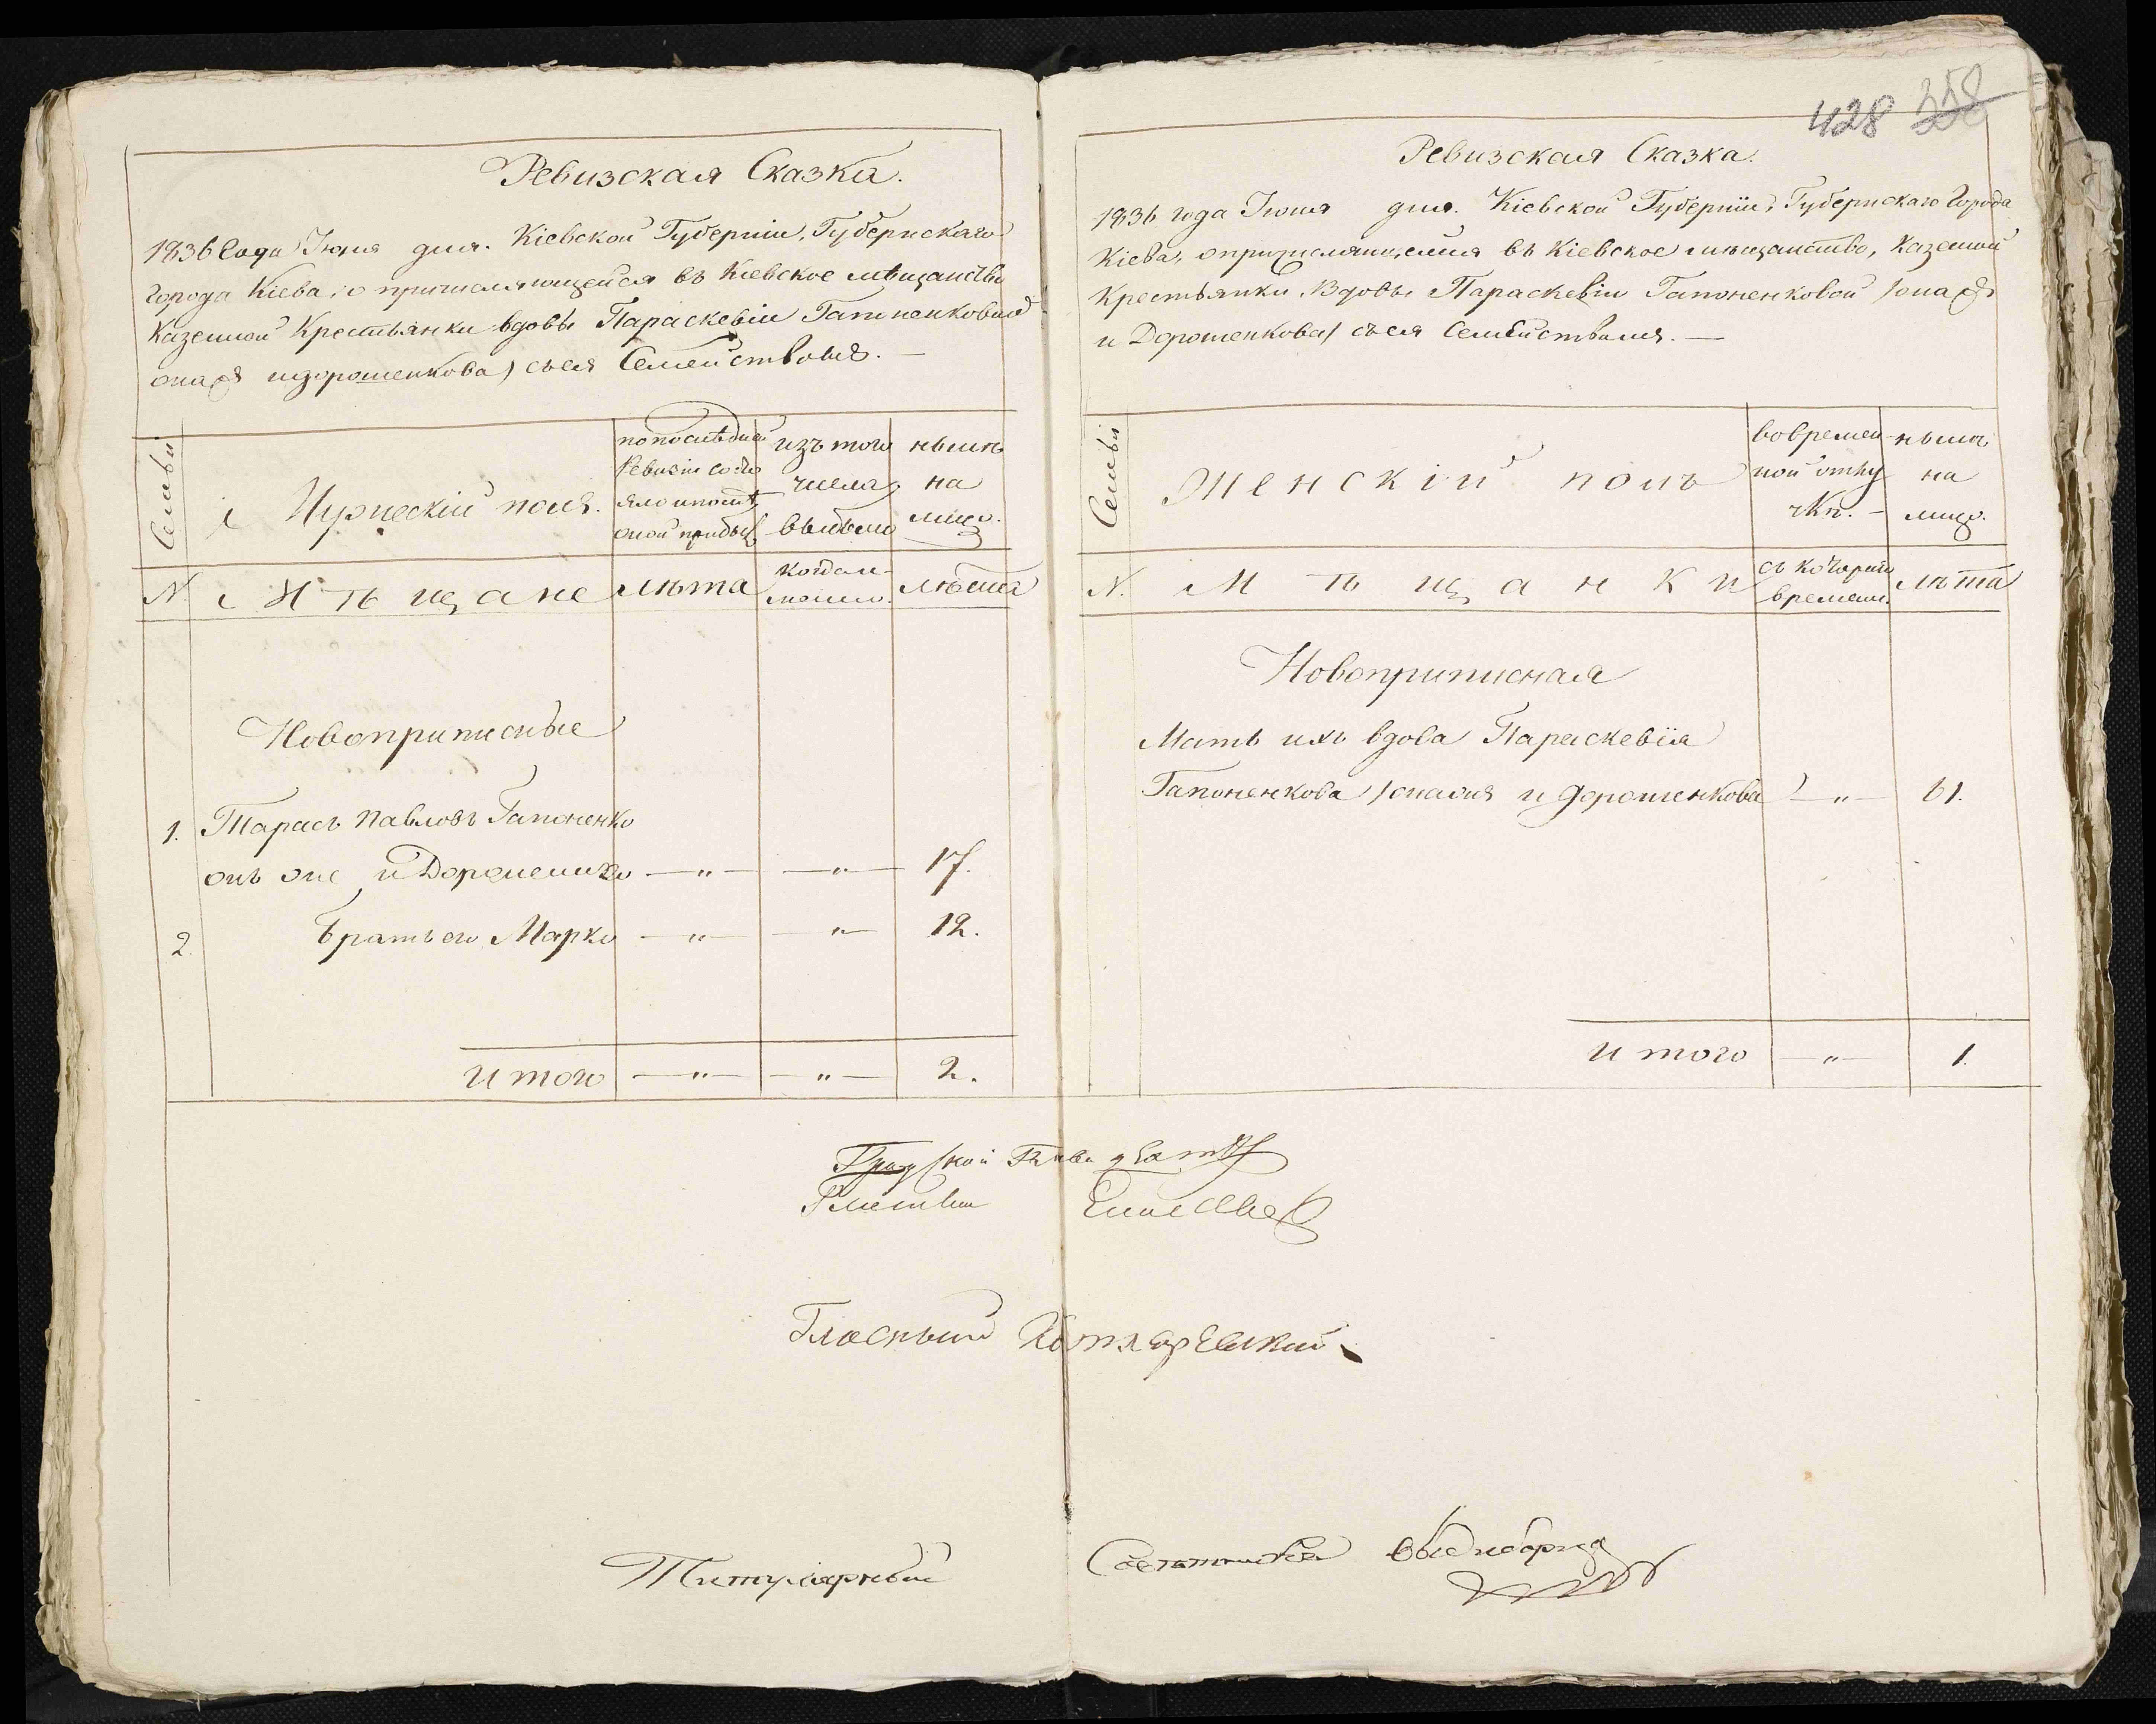 Ревизская Сказка.
1836 Года Іюня дня. Кіевской Губерніи, Губернскаго
города Кіева, о причисляющейся въ Кіевское мѣщанство
Казенной Крестьянки вдовы Параскевіи Гапоненковой
она жъ и дорошенкова) съ ея Семействомъ. —
Семьи
Мужескій полъ.
по последней
Ревизіи состо
яло и послѣ
оной прибыло
изъ того
числа
выбыло
нынѣ
на
лицо.
N.
Мѣщане
лѣта
когда и-
менно.
лѣта
Новоприписные
1. Тарасъ Павловъ Гапоненко
онъ же и Дорошенко — " — — " — 17.
2. братъ его Марко — " — — " — 12.
Итого — " — — " — 2.
428 358
Ревизская Сказка.
1836 года Іюня дня. Кіевской Губерніи, Губернскаго Города
Кіева, о причисляющейся въ Кіевское мѣщанство, Казенной
Крестьянки, Вдовы Параскевіи Гапоненковой /она жъ
и Дорошенкова/ съ ея Семействомъ. —
Семьи
Женскій полъ
во времен-
ной отлу
чкѣ. —
нынѣ
на
лицо.
N.
Мѣщанки
съ котораго
времени.
лѣта
Новоприписная
Мать ихъ вдова Параскевія
Гапоненкова /она жъ и дорошенкова — " — 61.
Итого — " — 1.
Градской Глава
Гласный
Гласный Котляревский
Титулярный Советникъ